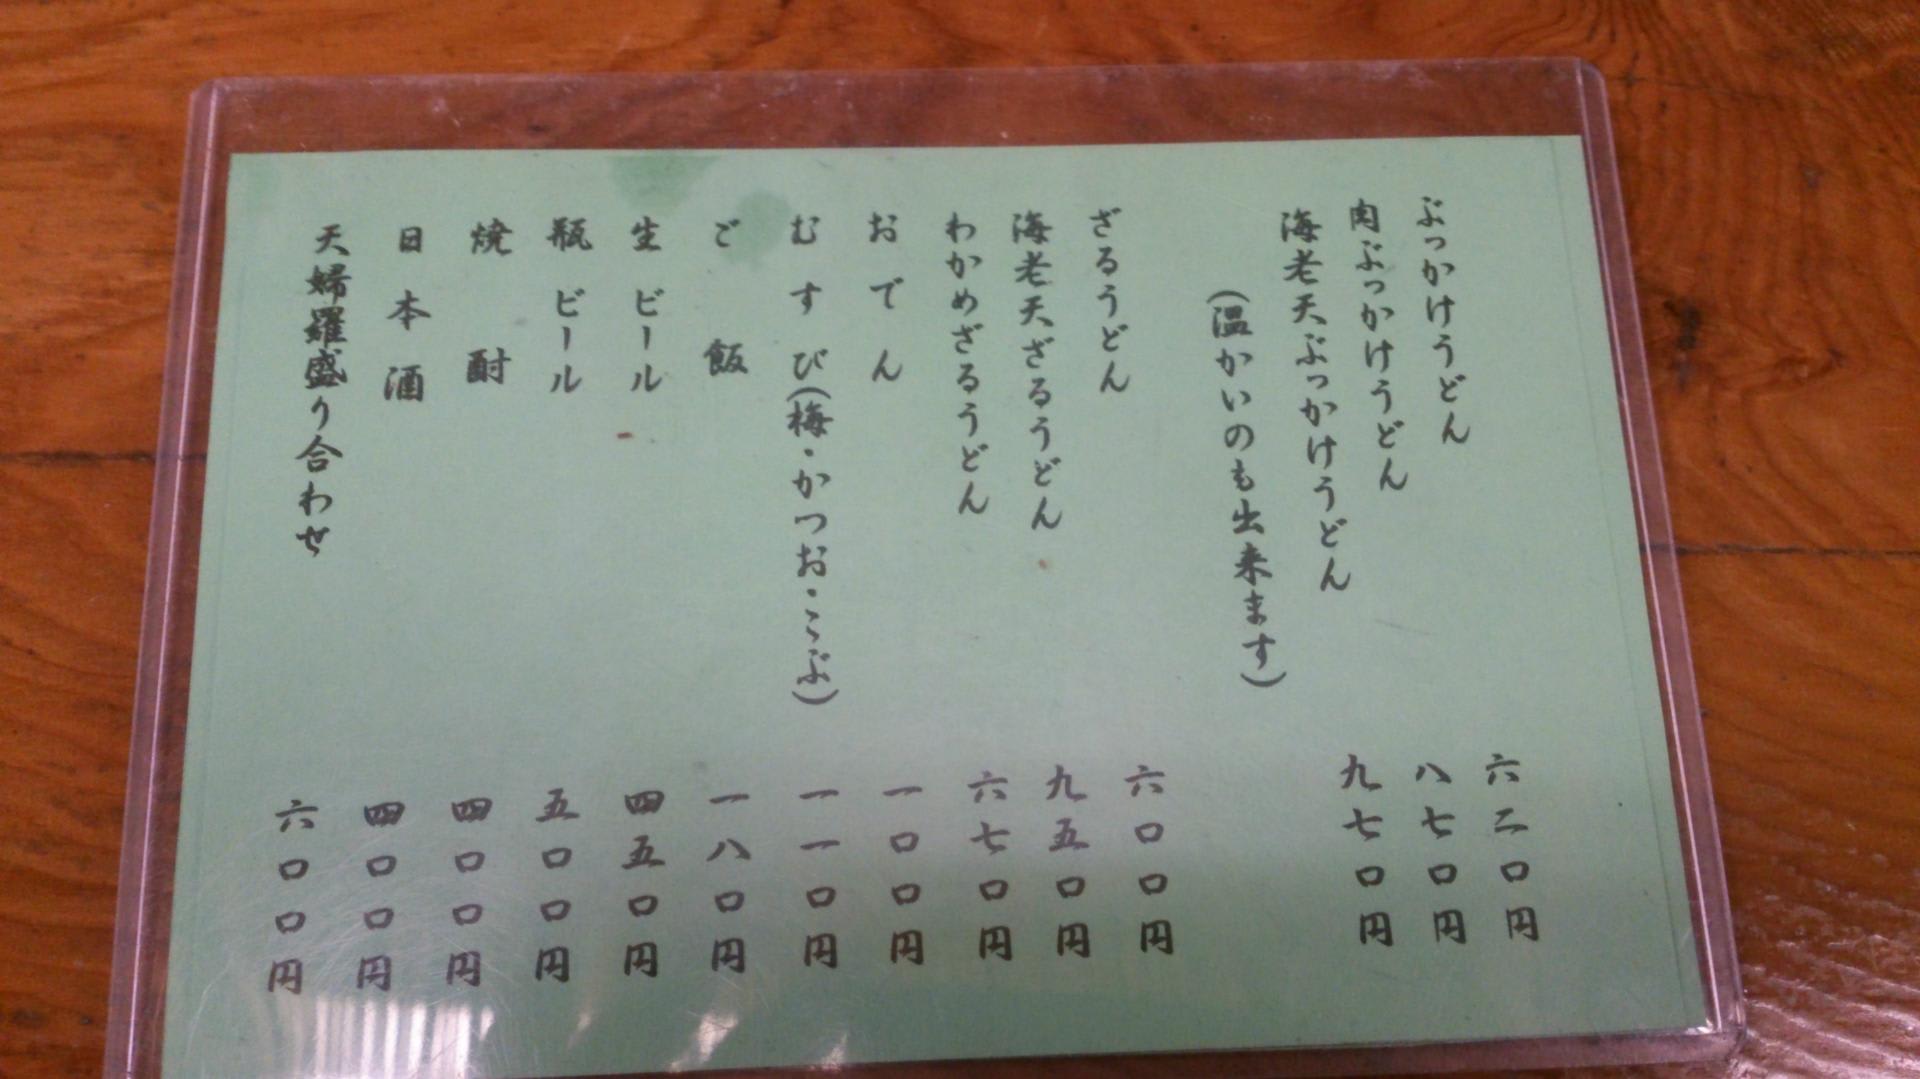 ぶっかけうどん 六二〇円
肉ぶっかけうどん 八七〇円
海老天ぶっかけうどん 九七〇円
(温かいのも出来ます)
ざるうどん 六〇〇円
海老天ざるうどん 九五〇円
わかめざるうどん 六七〇円
おでん 一〇〇円
むすび(梅・かつお・こぶ) 一一〇円
ご飯 一八〇円
生ビール 四五〇円
瓶ビール 五〇〇円
焼酎 四〇〇円
日本酒 四〇〇円
天婦羅盛り合わせ 六〇〇円